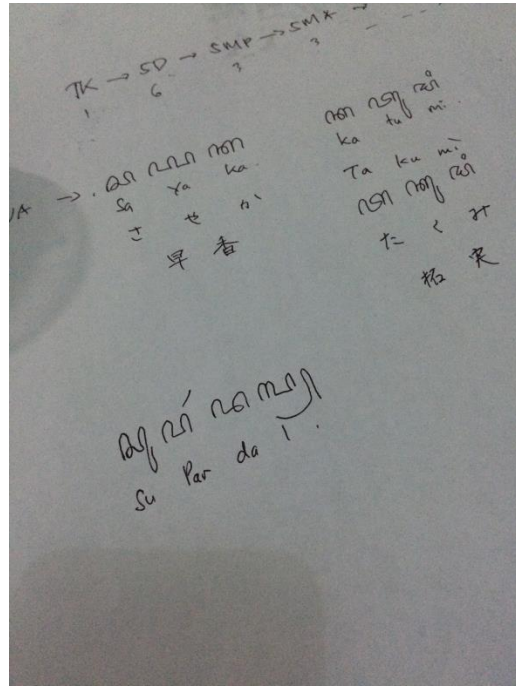 TK → SD → SMP → SMA → - - -
1 6 3 3
→ . ꦱꦪꦏ
Sa Ya ka
さ や か
早 香
ꦏꦠꦸꦩꦶ
ka tu mi
Ta ku mi
ꦠꦏꦸꦩꦶ
た く み
拓 実
ꦱꦸꦥꦂꦢꦭ꧀
Su Par da l .